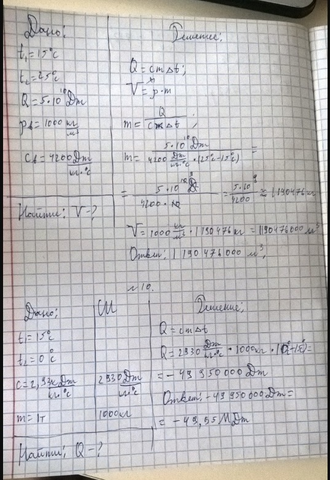 Дано:
Решение:
t₁=15°C
t₂=25°C
Q=5·10¹⁰Дж
ρв=1000 кг/м³
Cв=4200 Дж/кг·°C
Найти: V-?
Q=cmΔt;
V=ρ·m
m=Q/cвΔt;
m=5·10¹⁰Дж/4200 Дж/кг·°C·(25°C-15°C)=
=5·10¹⁰Дж/4200·10=5·10⁹/4200≈1190476кг
V=1000 кг/м³·1190476кг=1190476000 м³
Ответ: 1190476000 м³
№10.
Дано:
СИ
Решение:
t₁=15°C
t₂=0°C
c=2,33кДж/кг·°C
2330Дж/кг·°C
m=1т
1000кг
Найти: Q-?
Q=cmΔt
Q=2330 Дж/кг·°C·1000кг·(0°-15°)=
=-49350000Дж
Ответ: -49350000Дж=
=-49,35МДж